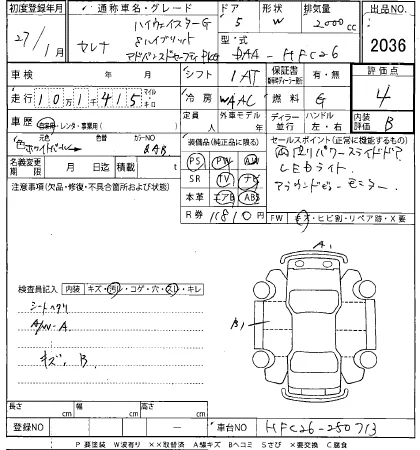 初度登録年月 通称車名・グレード ドア 型 排気量 出品NO.
27/1 セレナ ハイウェイスターG 5 W 2000cc 2036
Sハイブリット 型・式
アドバンスドセーフティPKG DAA-HFC26
車検 年 月 シフト 1AT 保証書 有・無 評価点
走行 101415 マイル キロ 冷房 WAAC 燃料 G 4
車歴 自家用・レンタ・事業用( ) 定員 人 外車モデル 年 ディーラー 並行 ハンドル 左・右 内装評価 B
元色 色替 カラーNO 装備品(純正品に限る) セールスポイント(正常に機能するもの)
色 ホワイトパール QAB PS PW AW 両側パワースライドドア
名義変更期限 月 日迄 積載 t SR TV ナビ LEDライト
注意事項(欠品・修復・不具合箇所および状態) 本革 エアB ABS アラウンドビューモニター
R券 11810 円 FW キズ・ヒビ割・リペア跡・X要
A1
検査員記入 内装 キズ・汚レ・コゲ・穴・スレ・キレ
シートヘタリ B1
A/W-A
キズ、B
長さ cm 幅 cm 高さ cm
登録NO ー 車台NO HFC26-250713
P要塗装 W波有り ××取替済 A線キズ Bヘコミ Sさび ×要交換 C腐食